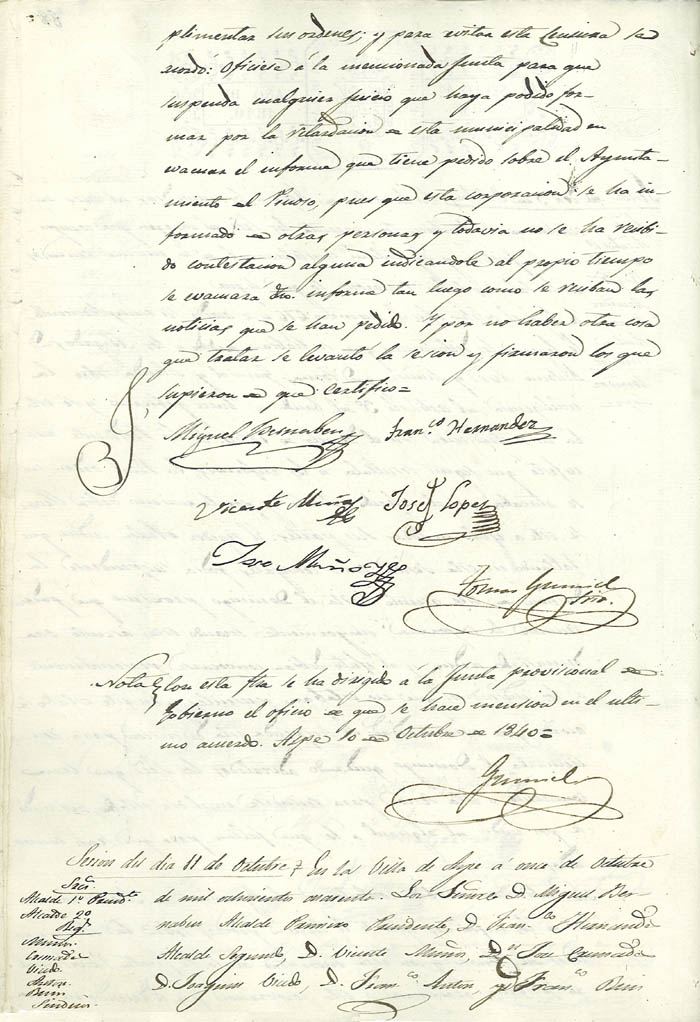 plimentar sus ordenes; y para evitar esta censura se
acordó: Oficiese á la mencionada Junta para que
suspenda cualquier juicio que haya podido for-
mar por la retardacion de esta municipalidad en
evacuar el informe que tiene pedido sobre el Ayunta-
miento del Pinoso, pues que esta corporacion se ha in-
formado de otras personas y todavia no se ha recibi-
do contestacion alguna indicandole al propio tiempo
se evacuará dho. informe tan luego como se reciban las
noticias que se han pedido. Y por no haber otra cosa
que tratar se levantó la sesion y firmaron los que
supieron de que certifico=
Miguel Bernabeu Franco Hernandez
Vicente Muñoz José Lopez
Jose Muñoz
Tomas Gumiel
Srio.
Nota Con esta fha se ha dirigido á la Junta provisional de
Gobierno el oficio de que se hace mension en el ulti-
mo acuerdo. Aspe 10 de Octubre de 1840=
Gumiel
Sesion del dia 11 de Octubre En la Villa de Aspe á once de Octubre
Sres.
Alcalde 1o Presidte. de mil ochocientos cuarenta. Los Señores D. Miguel Ber-
Alcalde 2o nabeu Alcalde Primero Presidente, D. Franco Hernandez
Regs.
Muñoz Alcalde Segundo, D. Vicente Muñoz, D. Jose Cremades
Cremades
Uredo D. Joaquin Uredo, D. Franco Anton, y Franco Beni
Anton
Beni
Sindico